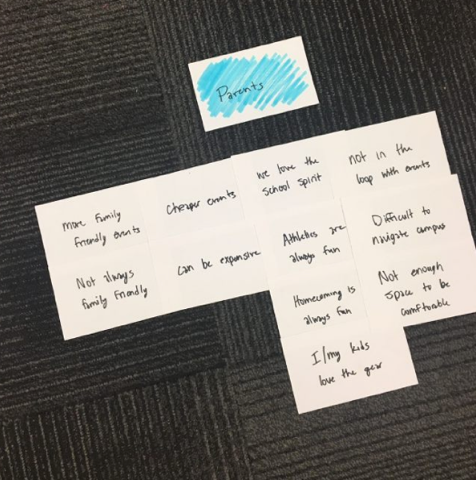 Parents
more family
friendly events
Not always
family friendly
Cheaper events
Can be expensive
we love the
school spirit
Athletics are
always fun
Homecoming is
always fun
I/my kids
love the gear
not in the
loop with events
Difficult to
navigate campus
Not enough
space to be
comftorable